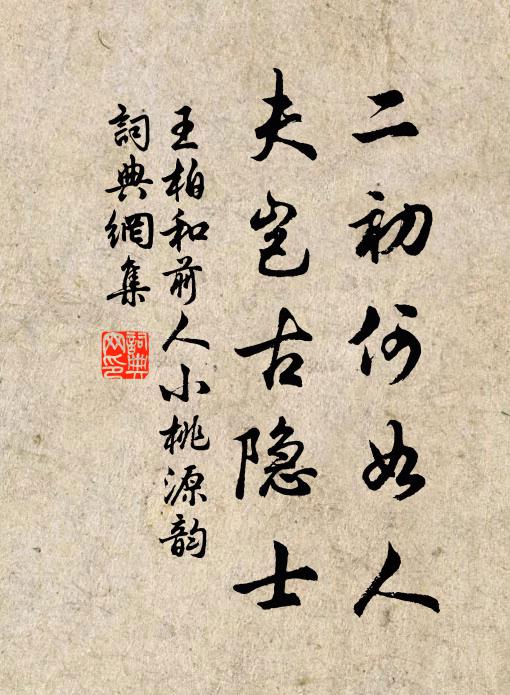 二初何如人
夫岂古隐士
王柏和前人小桃源韵
詞典網集
詞典网印